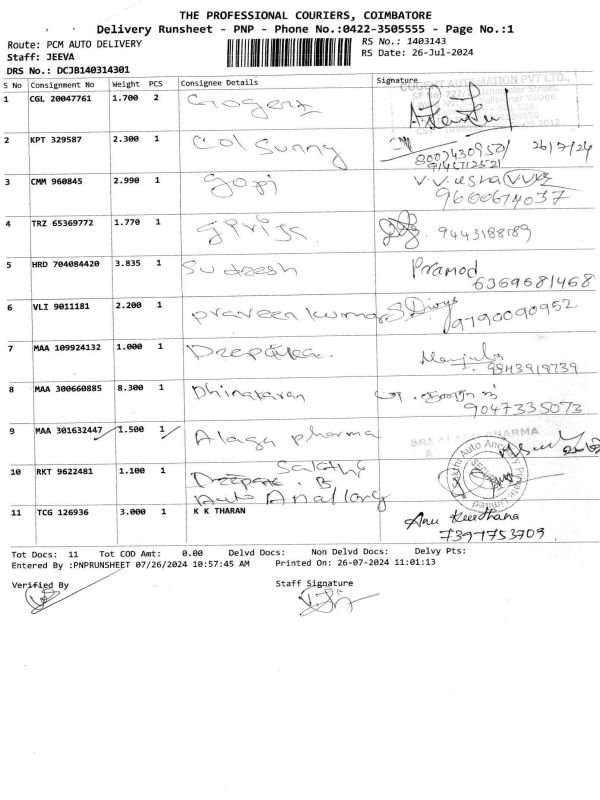 THE PROFESSIONAL COURIERS, COIMBATORE
Delivery Runsheet - PNP - Phone No.:0422-3505555 - Page No.:1
Route: PCM AUTO DELIVERY
RS No.: 1403143
Staff: JEEVA
RS Date: 26-Jul-2024
DRS No.: DCJB140314301
S No Consignment No Weight PCS Consignee Details Signature
COGENT AUTOMATION PVT LTD.,
1 CGL 20047761 1.700 2
2 KPT 329587 2.300 1 Col Sunny 8007430950/ 26/7/24
3 CMM 960845 2.990 1 gopi V.V.usha
9600614037
4 TRZ 65369772 1.770 1 girija 9443188189
5 HRD 704084420 3.835 1 Pramod
6369681468
6 VLI 9011181 2.200 1 praveen kumar S.Divya
9790090952
7 MAA 109924132 1.000 1 Deepika. Manjula
9843919739
8 MAA 300660885 8.300 1 Dhinakaran
9047335073
9 MAA 301632447 1.500 1 Alaga pharma
10 RKT 9622481 1.100 1 Sakthi
Deepak. B
Auto
11 TCG 126936 3.000 1 K K THARAN Anu Keerthana
7397753709
Tot Docs: 11 Tot COD Amt: 0.00 Delvd Docs: Non Delvd Docs: Delvy Pts:
Entered By :PNPRUNSHEET 07/26/2024 10:57:45 AM Printed On: 26-07-2024 11:01:13
Verified By Staff Signature